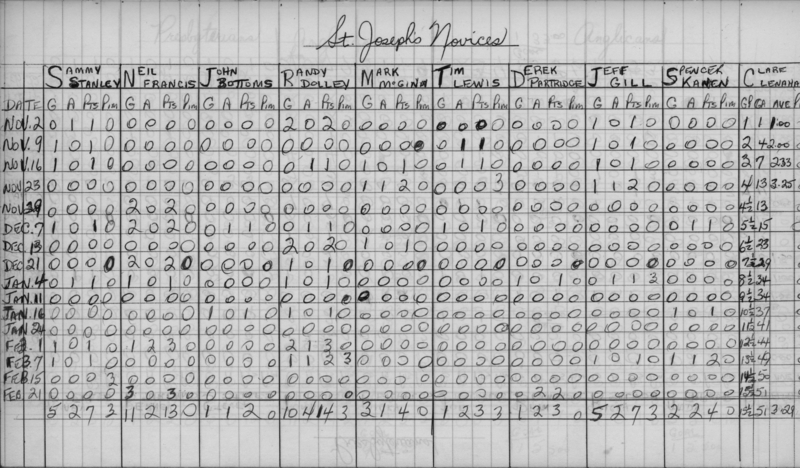 St. Joseph's Novices
SAMMY STANLEY NEIL FRANCIS JOHN BOTTOMS RANDY DOLLEY MARK McGINN TIM LEWIS DEREK PARTRIDGE JEFF GILL SPENCER KAMEN CLARE
DATE G A PTS PIM G A PTS PIM G A PTS PIM G A PTS PIM G A PTS PIM G A PTS PIM G A PTS PIM G A PTS PIM G A PTS PIM GP GA AVE
NOV. 2 0 1 1 0 0 0 0 0 0 0 0 0 2 0 2 0 0 0 0 0 0 0 0 0 0 0 0 0 1 0 1 0 0 0 0 0 1 1 1.00
NOV. 9 1 0 1 0 0 0 0 0 0 0 0 0 0 0 0 0 0 0 0 0 0 1 1 0 0 0 0 0 1 0 1 0 0 0 0 0 2 4 2.00
NOV. 16 1 0 1 0 0 0 0 0 0 0 0 0 0 1 1 0 1 0 1 0 0 1 1 0 0 0 0 0 1 0 1 0 0 0 0 0 3 7 2.33
NOV. 23 0 0 0 0 0 0 0 0 0 0 0 0 0 0 0 0 1 1 2 0 0 0 0 3 0 0 0 0 1 1 2 0 0 0 0 0 4 13 3.25
NOV. 29 0 0 0 0 2 0 2 0 0 0 0 0 0 0 0 0 0 0 0 0 0 0 0 0 0 0 0 0 0 0 0 0 0 0 0 0 4½ 13
DEC. 7 1 0 1 0 2 0 2 0 0 1 1 0 0 1 1 0 0 0 0 0 1 0 1 0 0 0 0 0 0 0 0 0 0 1 1 0 5½ 15
DEC. 13 0 0 0 0 0 0 0 0 0 0 0 0 2 0 2 0 1 0 1 0 0 0 0 0 0 0 0 0 0 0 0 0 0 0 0 0 6½
DEC. 21 0 0 0 0 2 0 2 0 0 0 0 0 1 0 1 0 0 0 0 0 0 0 0 0 0 0 0 0 0 0 0 0 0 0 0 0 7½ 29
JAN. 4 0 1 1 0 1 0 1 0 0 0 0 0 1 0 1 0 0 0 0 0 0 0 0 0 1 0 1 0 0 1 1 3 0 0 0 0 8½ 34
JAN. 11 0 0 0 0 0 0 0 0 0 0 0 0 0 0 0 0 0 0 0 0 0 0 0 0 0 0 0 0 0 0 0 0 0 0 0 0 9½ 34
JAN. 16 0 0 0 0 0 0 0 0 1 0 1 0 1 0 1 0 0 0 0 0 0 0 0 0 0 0 0 0 0 0 0 0 1 0 1 0 10½ 37
JAN. 24 0 0 0 0 0 0 0 0 0 0 0 0 0 0 0 0 0 0 0 0 0 0 0 0 0 0 0 0 0 0 0 0 0 0 0 0 11½ 41
FEB. 1 1 0 1 0 1 2 3 0 0 0 0 0 2 1 3 0 0 0 0 0 0 0 0 0 0 0 0 0 0 0 0 0 0 0 0 0 12½ 44
FEB. 7 1 0 1 0 0 0 0 0 0 0 0 0 1 1 2 3 0 0 0 0 0 0 0 0 0 0 0 0 1 0 1 0 1 1 2 0 13½ 49
FEB. 15 0 0 0 3 0 0 0 0 0 0 0 0 0 0 0 0 0 0 0 0 0 0 0 0 0 0 0 0 0 0 0 0 0 0 0 0 14½ 50
FEB. 21 0 0 0 0 3 0 3 0 0 0 0 0 0 0 0 0 0 0 0 0 0 0 0 0 0 2 2 0 0 0 0 0 0 0 0 0 15½ 51
5 2 7 3 11 2 13 0 1 1 2 0 10 4 14 3 3 1 4 0 1 2 3 3 1 2 3 0 5 2 7 3 2 2 4 0 15½ 51 3.29